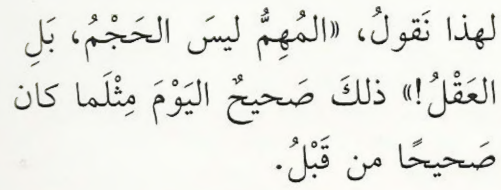 لهذا نَقولُ، «المُهِمُّ ليسَ الحَجْمُ، بَلِ
العَقْلُ!» ذلكَ صَحيحٌ اليَوْمَ مِثْلَما كان
صَحيحًا من قَبْلُ.